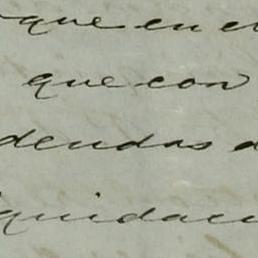 que en el
que con
dendas d
iquidaci